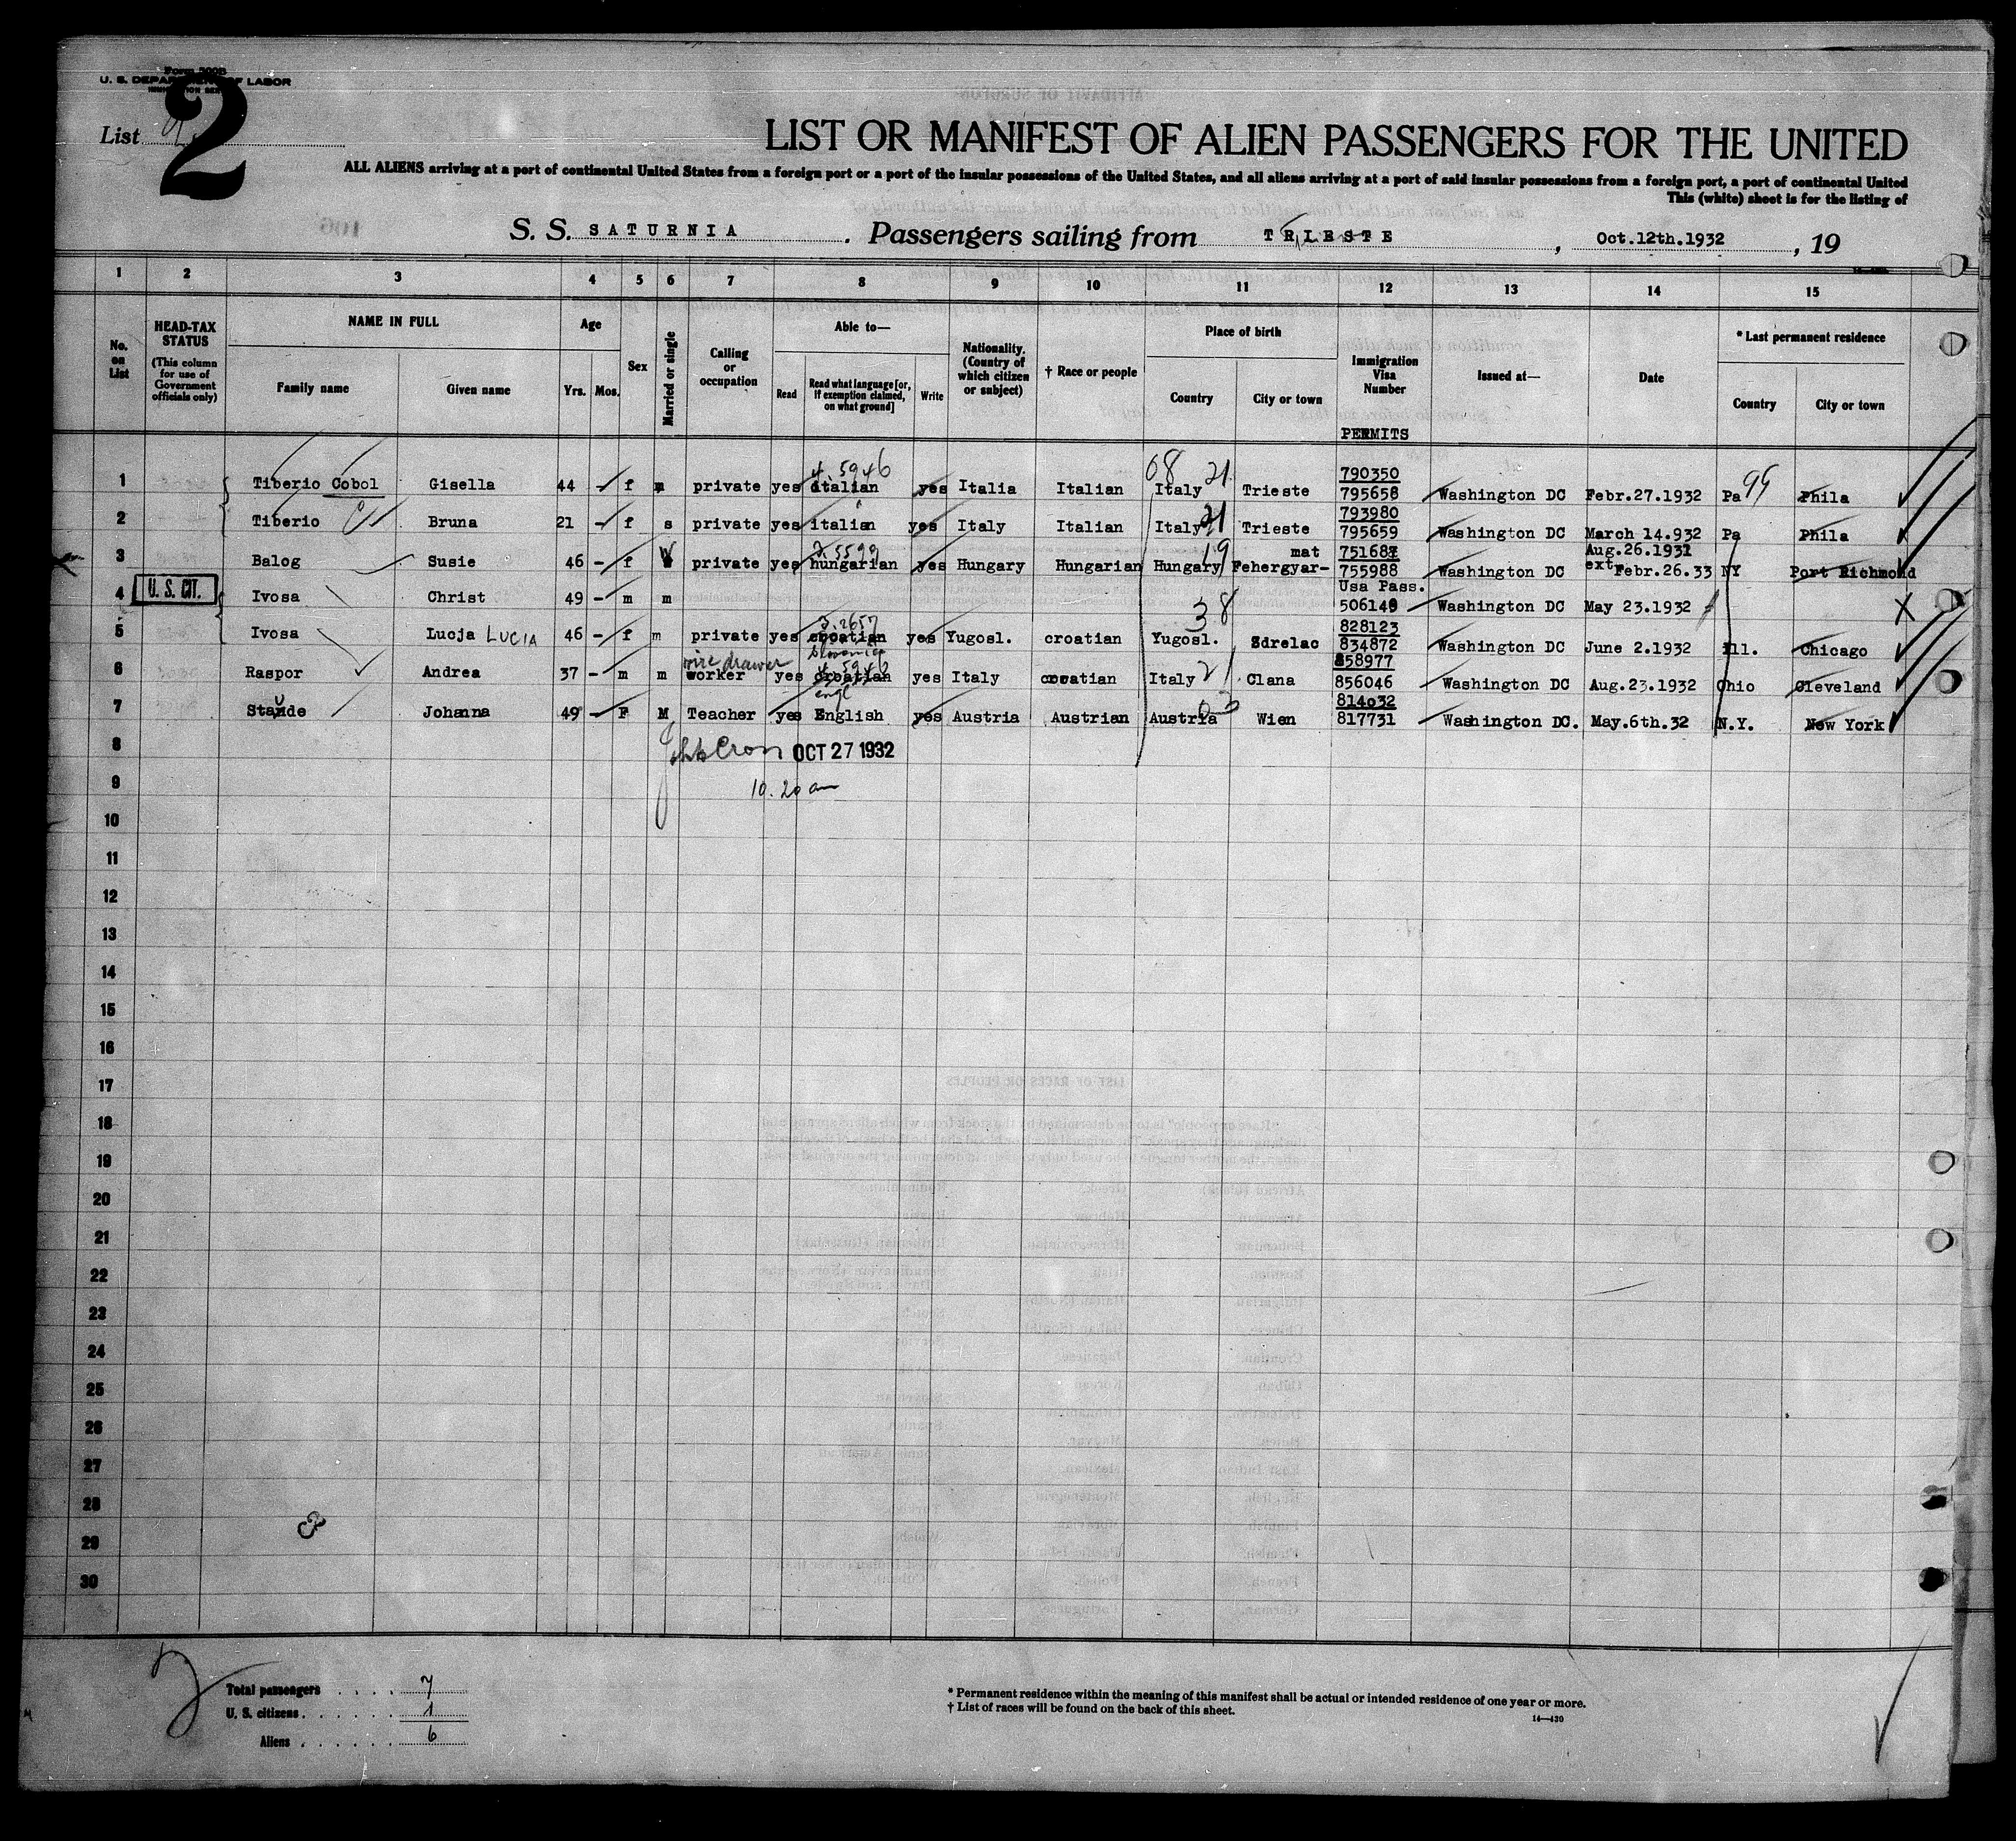 Form 500B
U. S. DEPARTMENT OF LABOR
List 2
LIST OR MANIFEST OF ALIEN PASSENGERS FOR THE UNITED
ALL ALIENS arriving at a port of continental United States from a foreign port or a port of the insular possessions of the United States, and all aliens arriving at a port of said insular possessions from a foreign port, a port of continental United
This (white) sheet is for the listing of
S. S. SATURNIA. Passengers sailing from TRIESTE, Oct.12th.1932, 19
1 2 3 4 5 6 7 8 9 10 11 12 13 14 15
No. on List
HEAD-TAX STATUS (This column for use of Government officials only)
NAME IN FULL
Family name Given name
Age
Yrs. Mos.
Sex
Married or single
Calling or occupation
Able to—
Read Read what language [or, if exemption claimed, on what ground] Write
Nationality. (Country of which citizen or subject)
† Race or people
Place of birth
Country City or town
Immigration Visa Number
PERMITS
Issued at—
Date
* Last permanent residence
Country City or town
1 Tiberio Cobol Gisella 44 - f m private yes italian 4 5946 yes Italia Italian Italy 21 Trieste 790350 795658 Washington DC Febr.27.1932 Pa Phila
2 Tiberio Bruna 21 - f s private yes italian yes Italy Italian Italy 21 Trieste 793980 795659 Washington DC March 14.932 Pa Phila
3 Balog Susie 46 - f W private yes hungarian yes Hungary Hungarian Hungary 19 Fehergyar-mat 751687 755988 Washington DC Aug.26.1931 ext Febr.26.33 NY Port Richmond
U. S. CIT.
4 Ivosa Christ 49 - m m Usa Pass. 506149 Washington DC May 23.1932 X
5 Ivosa Lucja LUCIA 46 - f m private yes croatian yes Yugosl. croatian Yugosl. 38 Zdrelac 828123 834872 Washington DC June 2.1932 Ill. Chicago
6 Raspor Andrea 37 - m m wire drawer worker yes croatian Slovenian 4 5946 yes Italy croatian Italy 21 Clana 858977 856046 Washington DC Aug.23.1932 Ohio Cleveland
7 Staude Johanna 49 - F M Teacher yes engl English yes Austria Austrian Austria 03 Wien 814032 817731 Washington DC. May.6th.32 N.Y. New York
8 OCT 27 1932
9 10.20 am
10
11
12
13
14
15
16
17
18
19
20
21
22
23
24
25
26
27
28
29
30
Total passengers . . . . 7
U. S. citizens . . . . . . 1
Aliens . . . . . . 6
* Permanent residence within the meaning of this manifest shall be actual or intended residence of one year or more.
† List of races will be found on the back of this sheet.
14—430